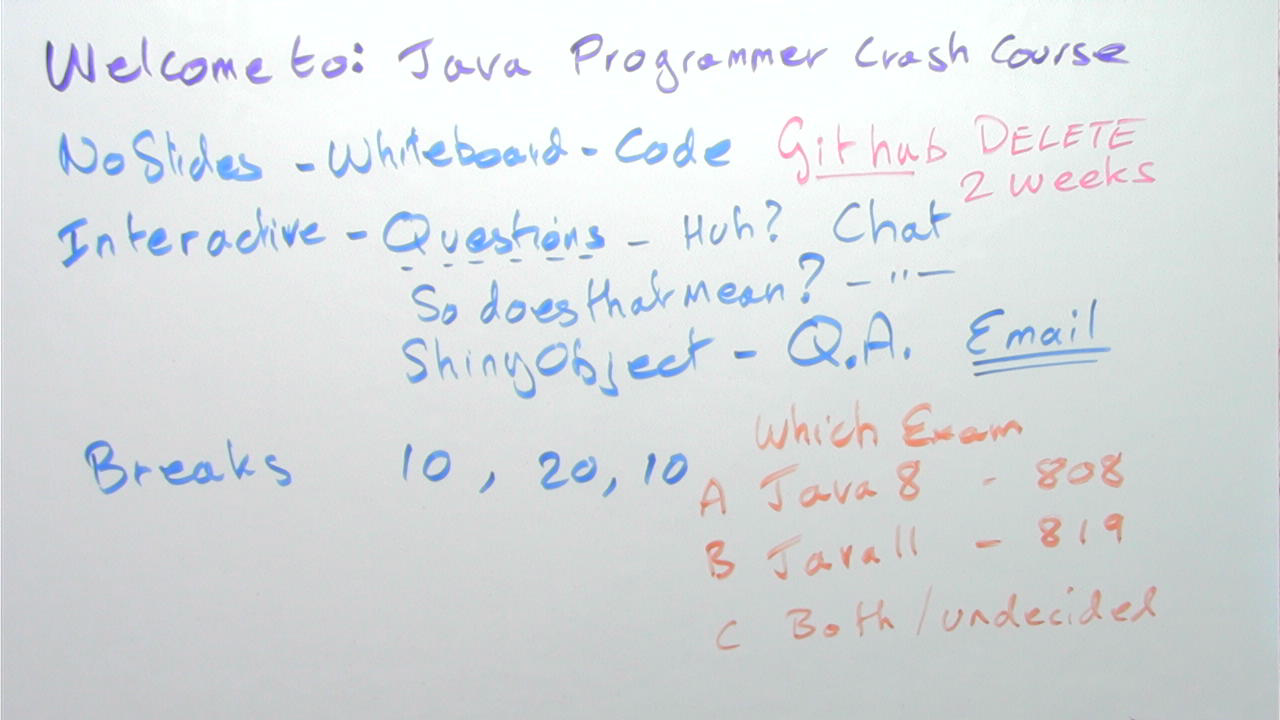 Welcome to: Java Programmer Crash Course
No Slides - Whiteboard - Code Github DELETE
2 weeks
Interactive - Questions - Huh? Chat
So does that mean? - " -
Shiny Object - Q.A. Email
Which Exam
Breaks 10, 20, 10
A Java 8 - 808
B Java 11 - 819
C Both / undecided